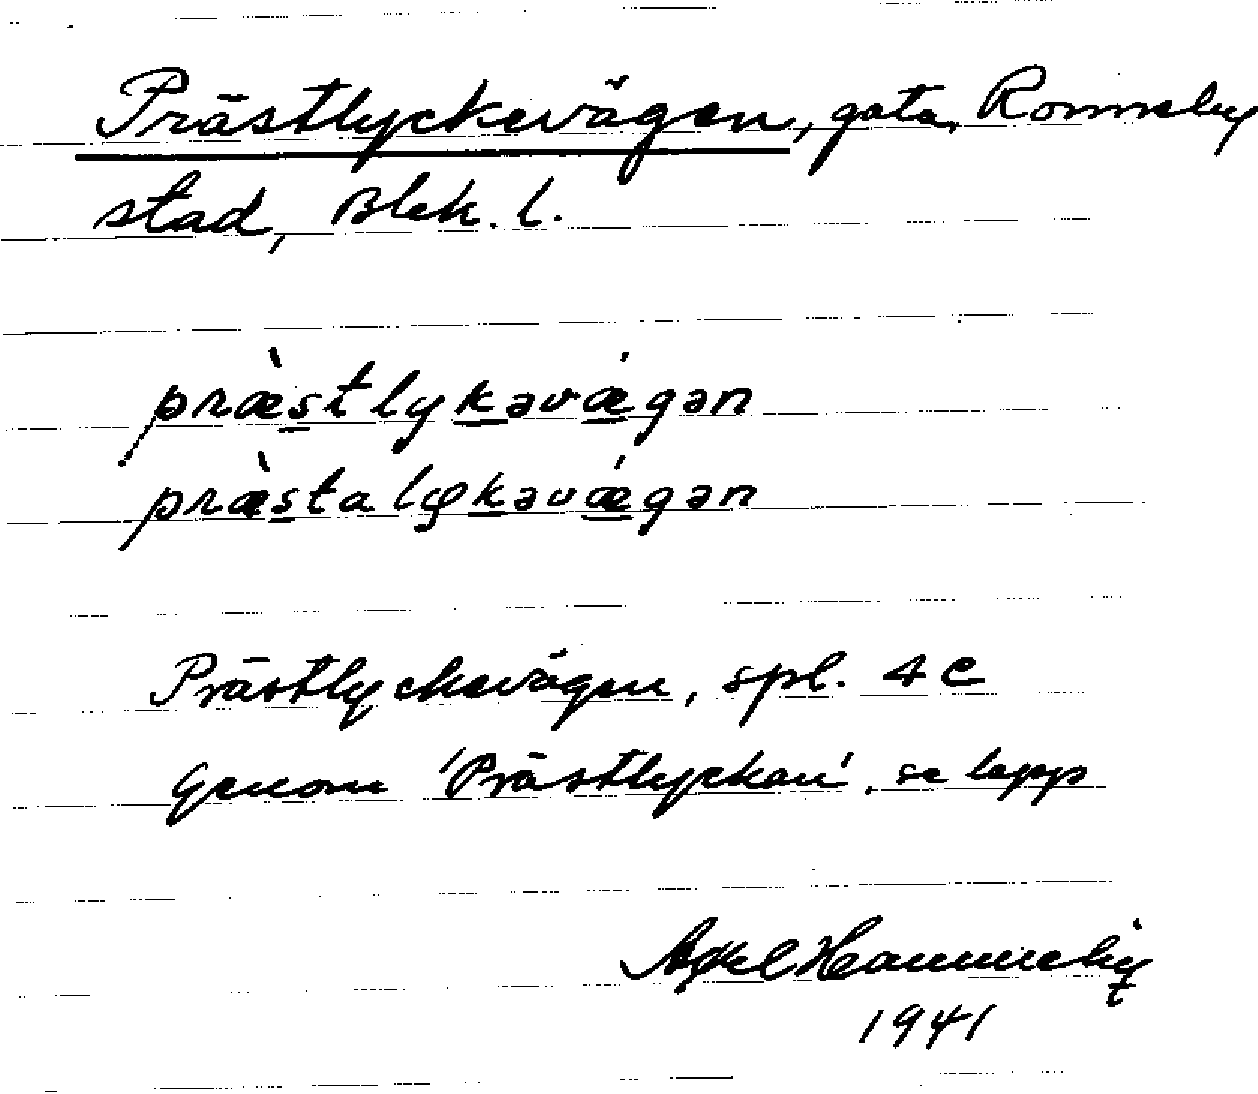 Prästlyckevägen, gata, Ronneby
stad, Blek. l.
præ̀stlykəvǽgən
præ̀stalykəvǽgən
Prästlyckevägen, spl. 4 C
Genom 'Prästlyckan', se lapp
Axel
1941